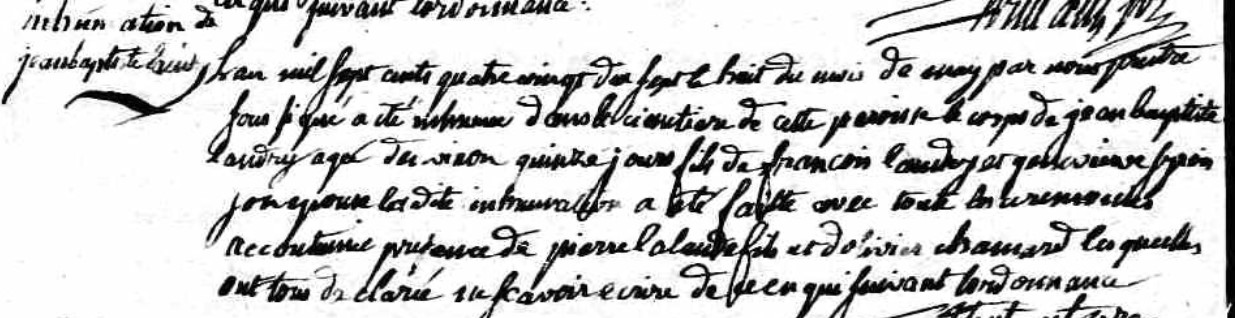 quis suivant lordonnance.
inhumation de
jean baptiste
lan mil sept cents quatre vingt dix sept le huit du mois de may par nous pretre
sous signé a été inhumé dans le cimetiere de cette paroisse le corps de jean baptiste
landry agé denviron quinze jours fils de francois landry et genevieve
son epouse ladite inhumation a été faitte avec toute les ceremonies
accoutumée presence de pierre lalande fils et dolivier chamard lesquelles
ont tous declarée ne scavoir ecrire de ce enquis suivant lordonnance